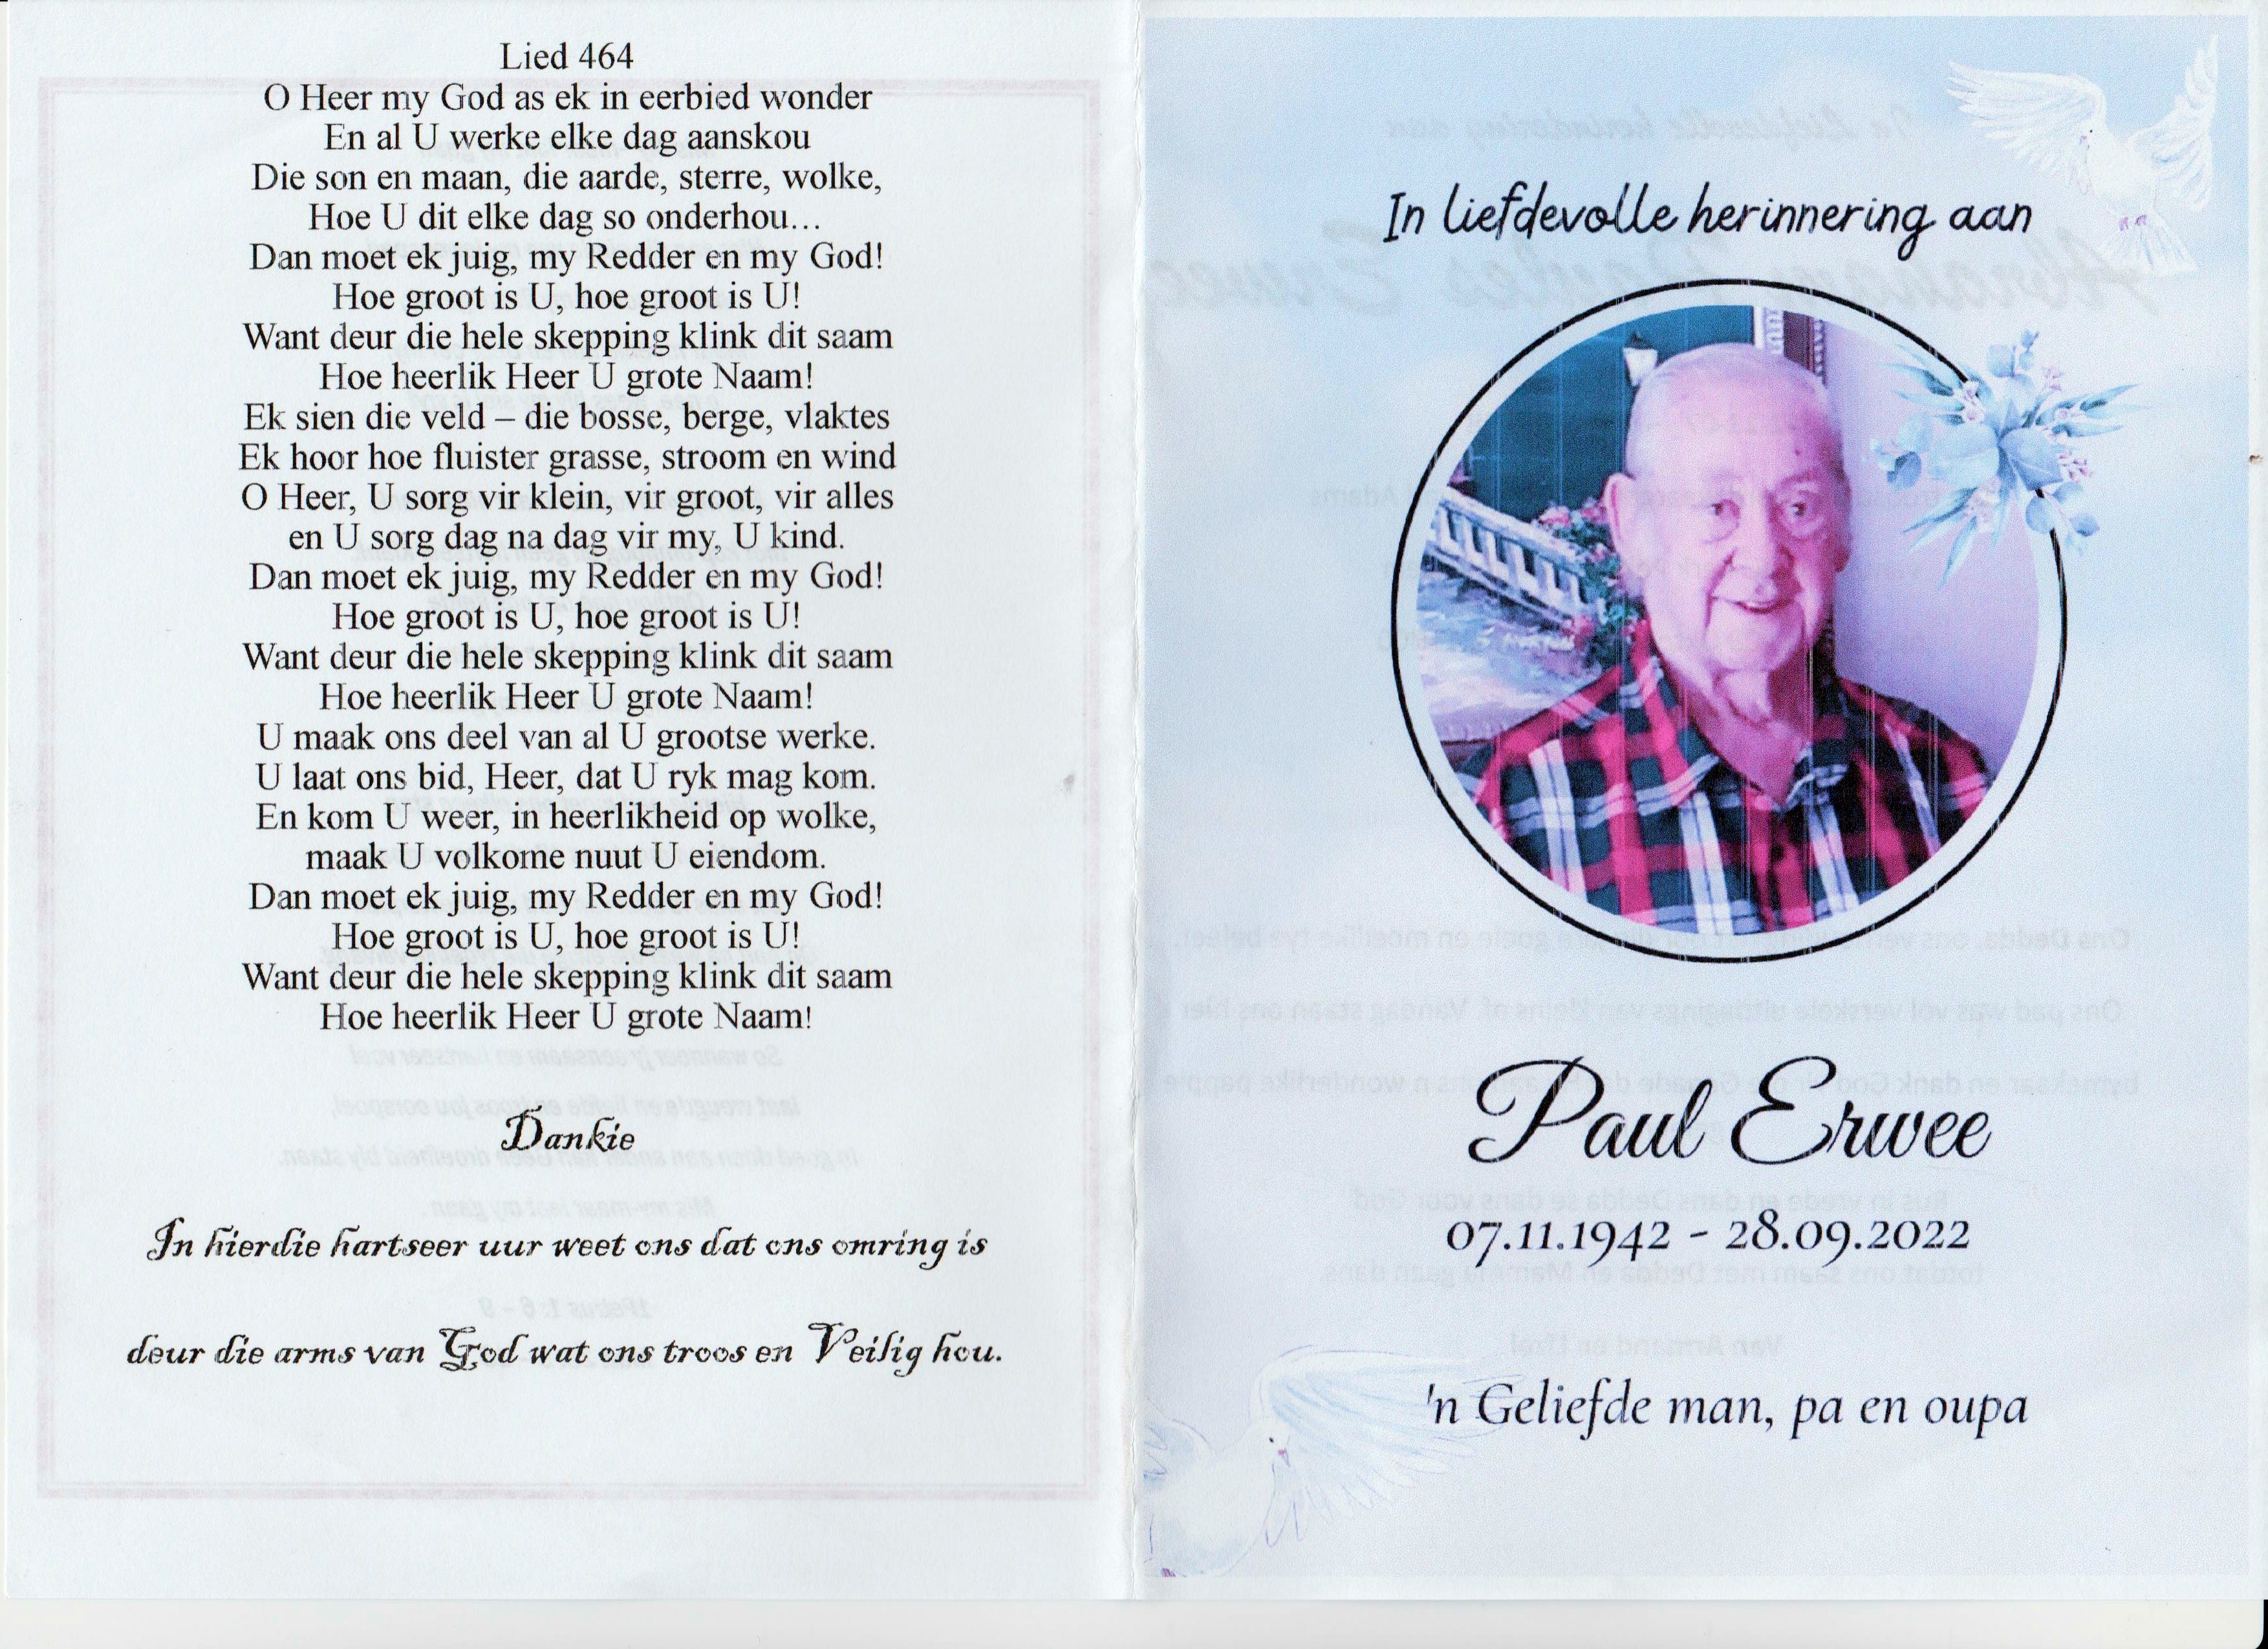 Lied 464
O Heer my God as ek in eerbied wonder
En al U werke elke dag aanskou
Die son en maan, die aarde, sterre, wolke,
Hoe U dit elke dag so onderhou...
Dan moet ek juig, my Redder en my God!
Hoe groot is U, hoe groot is U!
Want deur die hele skepping klink dit saam
Hoe heerlik Heer U grote Naam!
Ek sien die veld – die bosse, berge, vlaktes
Ek hoor hoe fluister grasse, stroom en wind
O Heer, U sorg vir klein, vir groot, vir alles
en U sorg dag na dag vir my, U kind.
Dan moet ek juig, my Redder en my God!
Hoe groot is U, hoe groot is U!
Want deur die hele skepping klink dit saam
Hoe heerlik Heer U grote Naam!
U maak ons deel van al U grootse werke.
U laat ons bid, Heer, dat U ryk mag kom.
En kom U weer, in heerlikheid op wolke,
maak U volkome nuut U eiendom.
Dan moet ek juig, my Redder en my God!
Hoe groot is U, hoe groot is U!
Want deur die hele skepping klink dit saam
Hoe heerlik Heer U grote Naam!
Dankie
In hierdie hartseer uur weet ons dat ons omring is
deur die arms van God wat ons troos en Veilig hou.
In liefdevolle herinnering aan
Paul Erwee
07.11.1942 - 28.09.2022
'n Geliefde man, pa en oupa